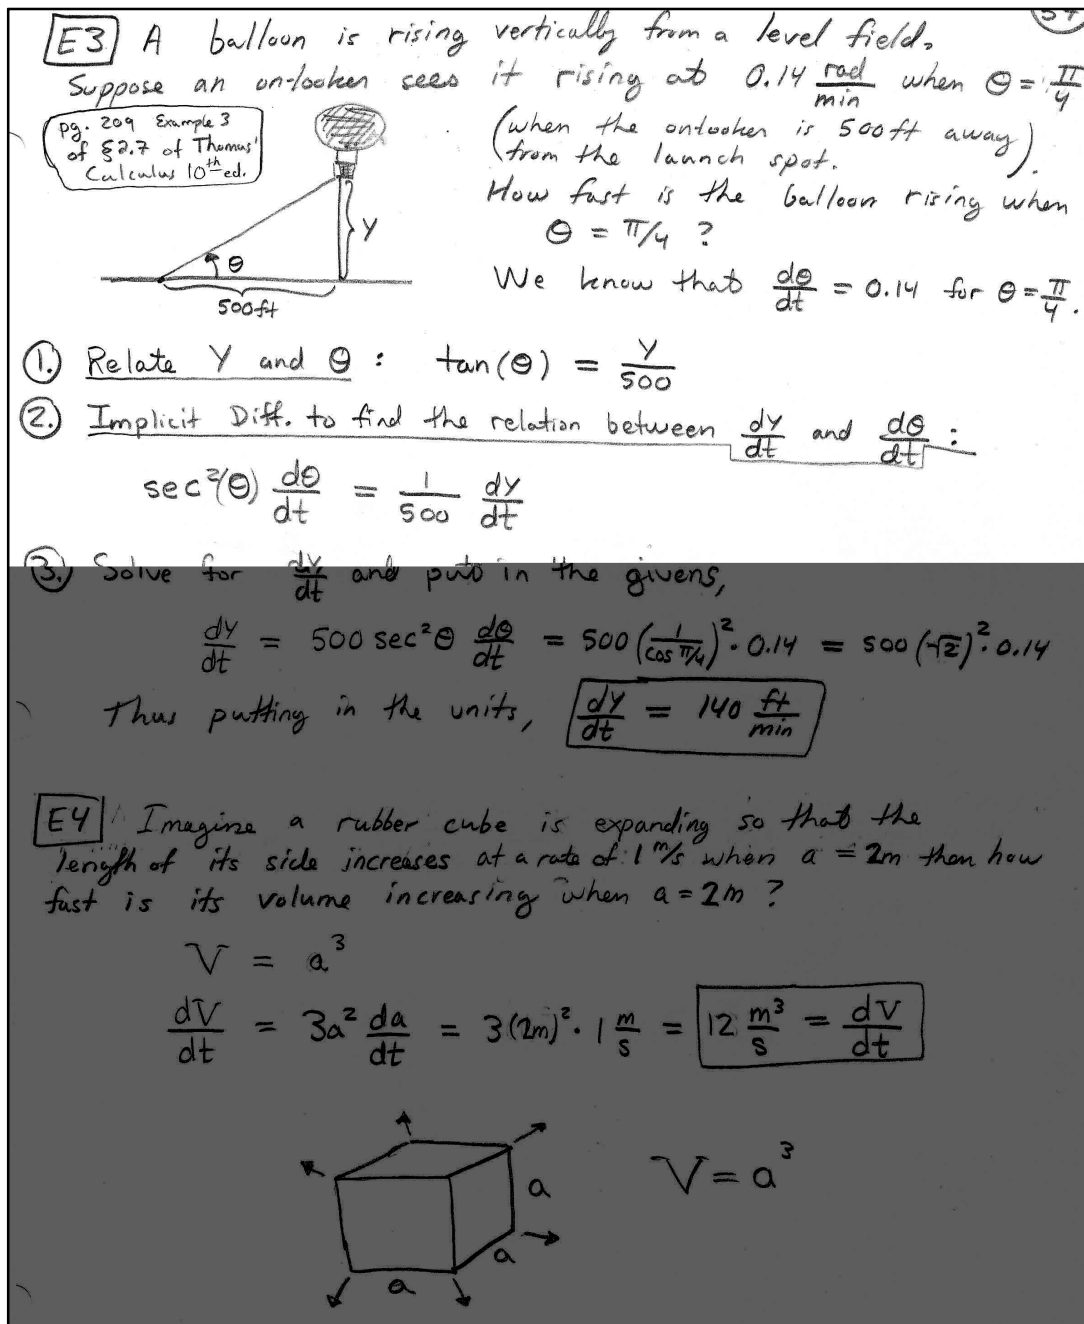 54
E3 A balloon is rising vertically from a level field.
Suppose an onlooker sees it rising at 0.14 rad/min when θ = π/4
(when the onlooker is 500 ft away from the launch spot.)
pg. 209 Example 3
of §2.7 of Thomas'
Calculus 10th ed.
How fast is the balloon rising when
θ = π/4 ?
y
θ
500ft
We know that dθ/dt = 0.14 for θ = π/4.
1. Relate y and θ : tan(θ) = y/500
2. Implicit Diff. to find the relation between dy/dt and dθ/dt :
sec²(θ) dθ/dt = 1/500 dy/dt
3. Solve for dy/dt and put in the givens,
dy/dt = 500 sec²θ dθ/dt = 500 (1/cos π/4)² · 0.14 = 500 (√2)² · 0.14
Thus putting in the units, dy/dt = 140 ft/min
E4 Imagine a rubber cube is expanding so that the
length of its side increases at a rate of 1 m/s when a = 2m then how
fast is its volume increasing when a = 2m ?
V = a³
dV/dt = 3a² da/dt = 3(2m)² · 1 m/s = 12 m³/s = dV/dt
a
a
a
V = a³